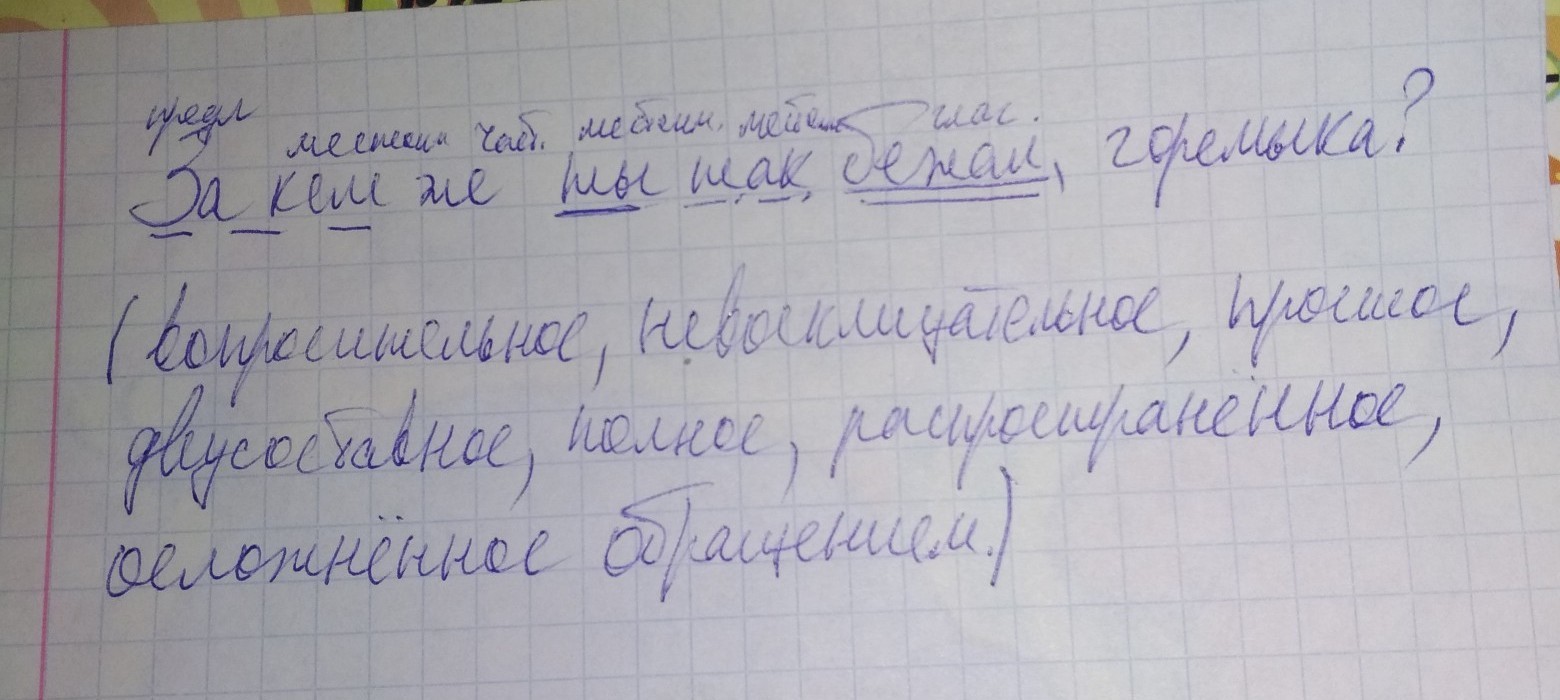 предл
местоим част. местоим. местоим глаг.
За кем же ты так бежал, горемыка?
(вопросительное, невосклицательное, простое,
двусоставное, полное, распространённое,
осложнённое обращением.)